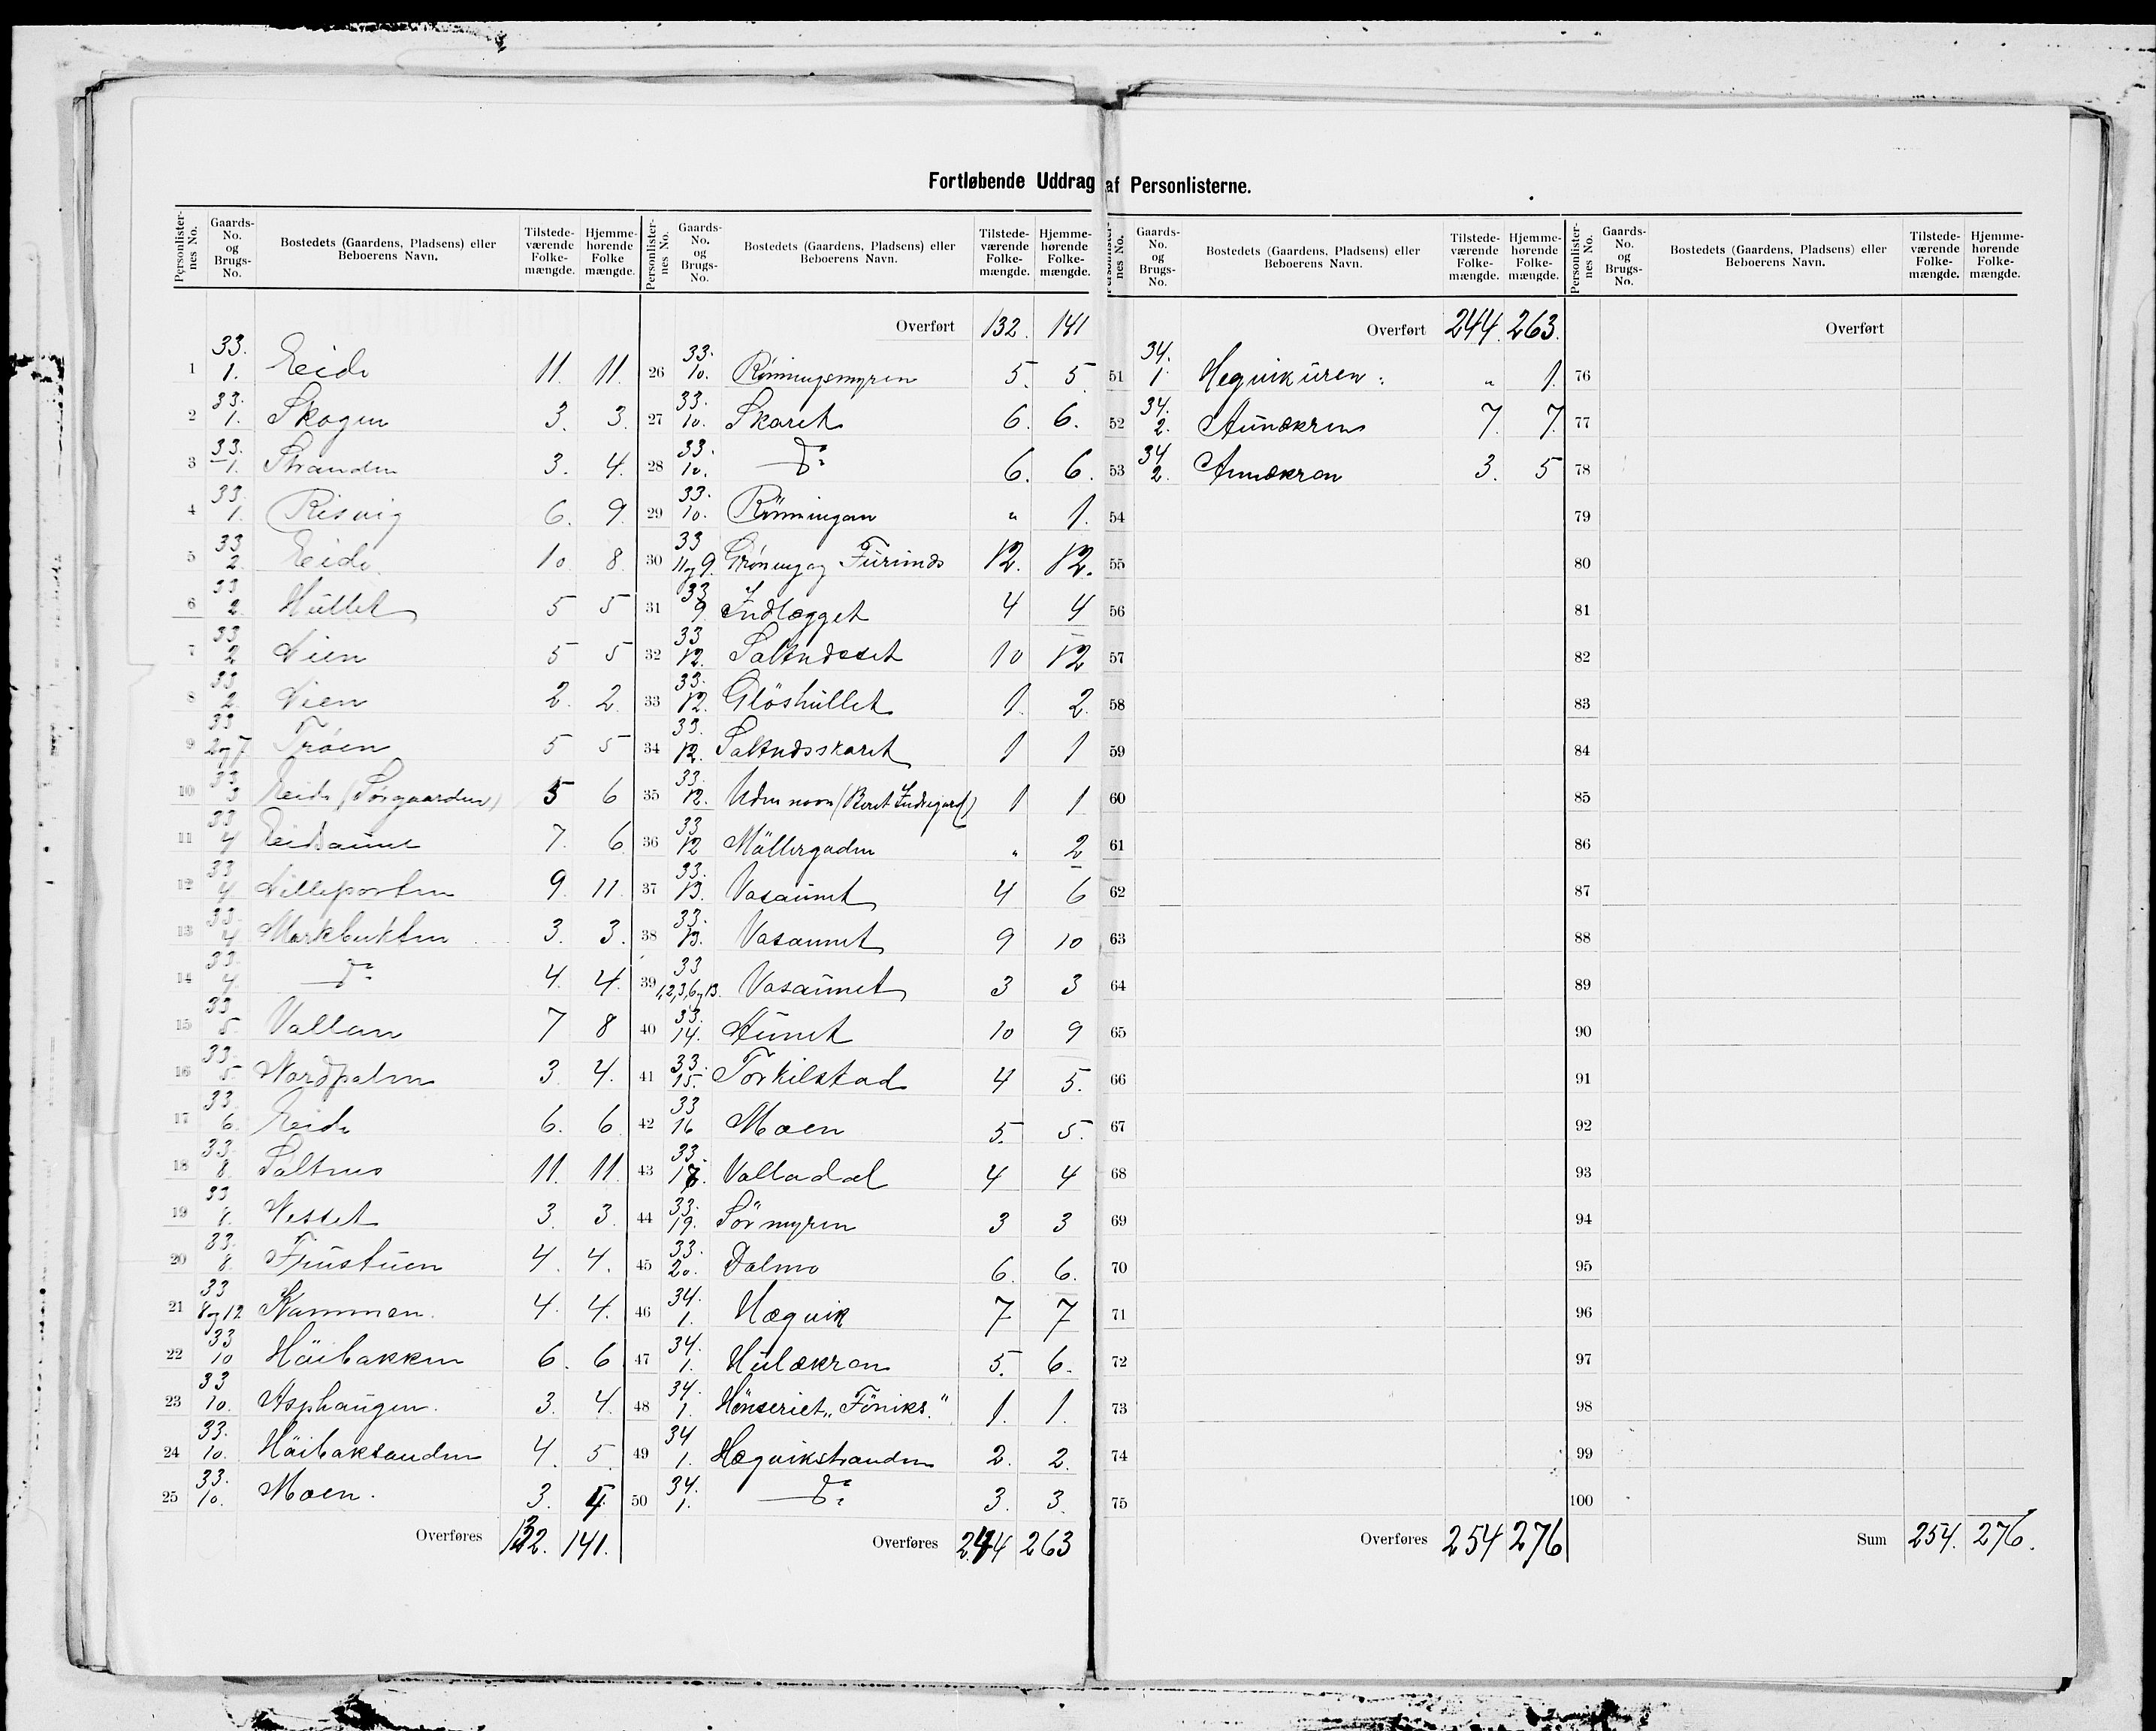 Fortløbende Uddrag af Personlisterne.
Personlister-nes No. Gaards-No. og Brugs-No. Bostedets (Gaardens, Pladsens) eller Beboerens Navn. Tilstede-værende Folke-mængde. Hjemme-hørende Folke mængde.
1 33. 1. Eide 11. 11.
2 33. 1. Skogen 3. 3.
3 33. 1. Stranden 3. 4.
4 33. 1. Risvig 6. 9.
5 33 2. Eide 10 8.
6 33 2. Hullet 5 5
7 33 2 Lien 5 5
8 33 2. Lien 2. 2.
9 33 2 og 7 Trøen 5 5
10 33 3 Eide (Sørgaarden) 5 6
11 33 4 Eidsaune 7. 6
12 33 4 Lilleporten 9. 11.
13 33. 4 Markbukten 3. 3.
14 33. 4. Do 4. 4.
15 33 5. Vollan 7 8
16 33. 5. Nordpalen 3. 4.
17 33. 6. Eide 6. 6
18 33. 8. Saltnes 11. 11.
19 33 8. Nesset 3. 3.
20 33. 8. Fjustuen 4. 4.
21 33 8 og 12. Kammen. 4. 4.
22 33 10 Höibakken 6. 6
23 33 10. Asphaugen. 3. 4.
24 33. 10. Höibaksanden 4. 5
25 33. 10. Moen. 3. 4.
Overføres 132. 141.
Personlister-nes No. Gaards-No. og Brugs-No. Bostedets (Gaardens, Pladsens) eller Beboerens Navn. Tilstede-værende Folke-mængde. Hjemme-hørende Folke-mængde.
Overført 132. 141
26 33. 10. Rønningsmyren 5. 5.
27 33. 10. Skaret 6. 6.
28 33. 10. Do 6. 6.
29 33. 10. Rönningan " 1.
30 33 11 og 9. Grøning og Furunds 12. 12.
31 33 9 Indlægget 4 4
32 33 12. Saltnesset 10 12
33 33. 12. Glöshullet 1. 2.
34 33. 12. Saltnesskaret 1 1
35 33. 12. Uden navn (Beret Indregard) 1 1
36 33 12 Möllergaden " 2
37 33. 13. Vasaunet 4 6
38 33. 13. Vasaunet 9 10
39 33 1,2,3,6 og 13. Vasaunet 3 3
40 33. 14. Aunet 10 9
41 33. 15. Torkilstad 4 5.
42 33 16 Moen 5. 5.
43 33. 17. Volladal 4 4
44 33. 19. Sörmyren 3 3
45 33. 20. Dalmo 6. 6.
46 34. 1. Hægvik 7 7
47 34. 1. Hulækran 5. 6.
48 34. 1. Hönseriet „Föniks." 1. 1.
49 34 1. Hægvikstranden 2. 2.
50 34. 1. Do 3. 3.
Overføres 244 263
Personlister-nes No. Gaards-No. og Brugs-No. Bostedets (Gaardens, Pladsens) eller Beboerens Navn. Tilstede-værende Folke-mængde. Hjemme-hørende Folke-mængde.
Overført 244. 263.
51 34. 1. Hegvikuren. " 1.
52 34. 2. Aunækren 7. 7.
53 34 2. Aunækran 3. 5
54
55
56
57
58
59
60
61
62
63
64
65
66
67
68
69
70
71
72
73
74
75
Overføres 254 276
Personlister-nes No. Gaards-No. og Brugs-No. Bostedets (Gaardens, Pladsens) eller Beboerens Navn. Tilstede-værende Folke-mængde. Hjemme-hørende Folke-mængde.
Overført
76
77
78
79
80
81
82
83
84
85
86
87
88
89
90
91
92
93
94
95
96
97
98
99
100
Sum 254. 276.